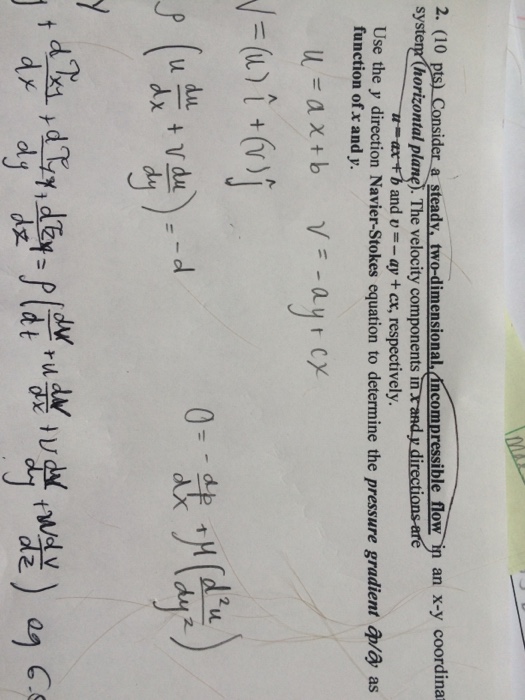 2. (10 pts) Consider a steady, two-dimensional, incompressible flow in an x-y coordina
system (horizontal plane). The velocity components in x and y directions are
u = ax + b and υ = − ay + cx, respectively.
Use the y direction Navier-Stokes equation to determine the pressure gradient ∂p/∂y as
function of x and y.
u = ax+b v = -ay+cx
V = (u) î + (v) ĵ
ρ (u du/dx + v du/dy) = -d
0 = - dp/dx + μ (d²u/dy²)
y
+ dτxy/dx + dτyy/dy + dτzy/dz = ρ (dv/dt + u dv/dx + v dv/dy + w dv/dz) eq 6.